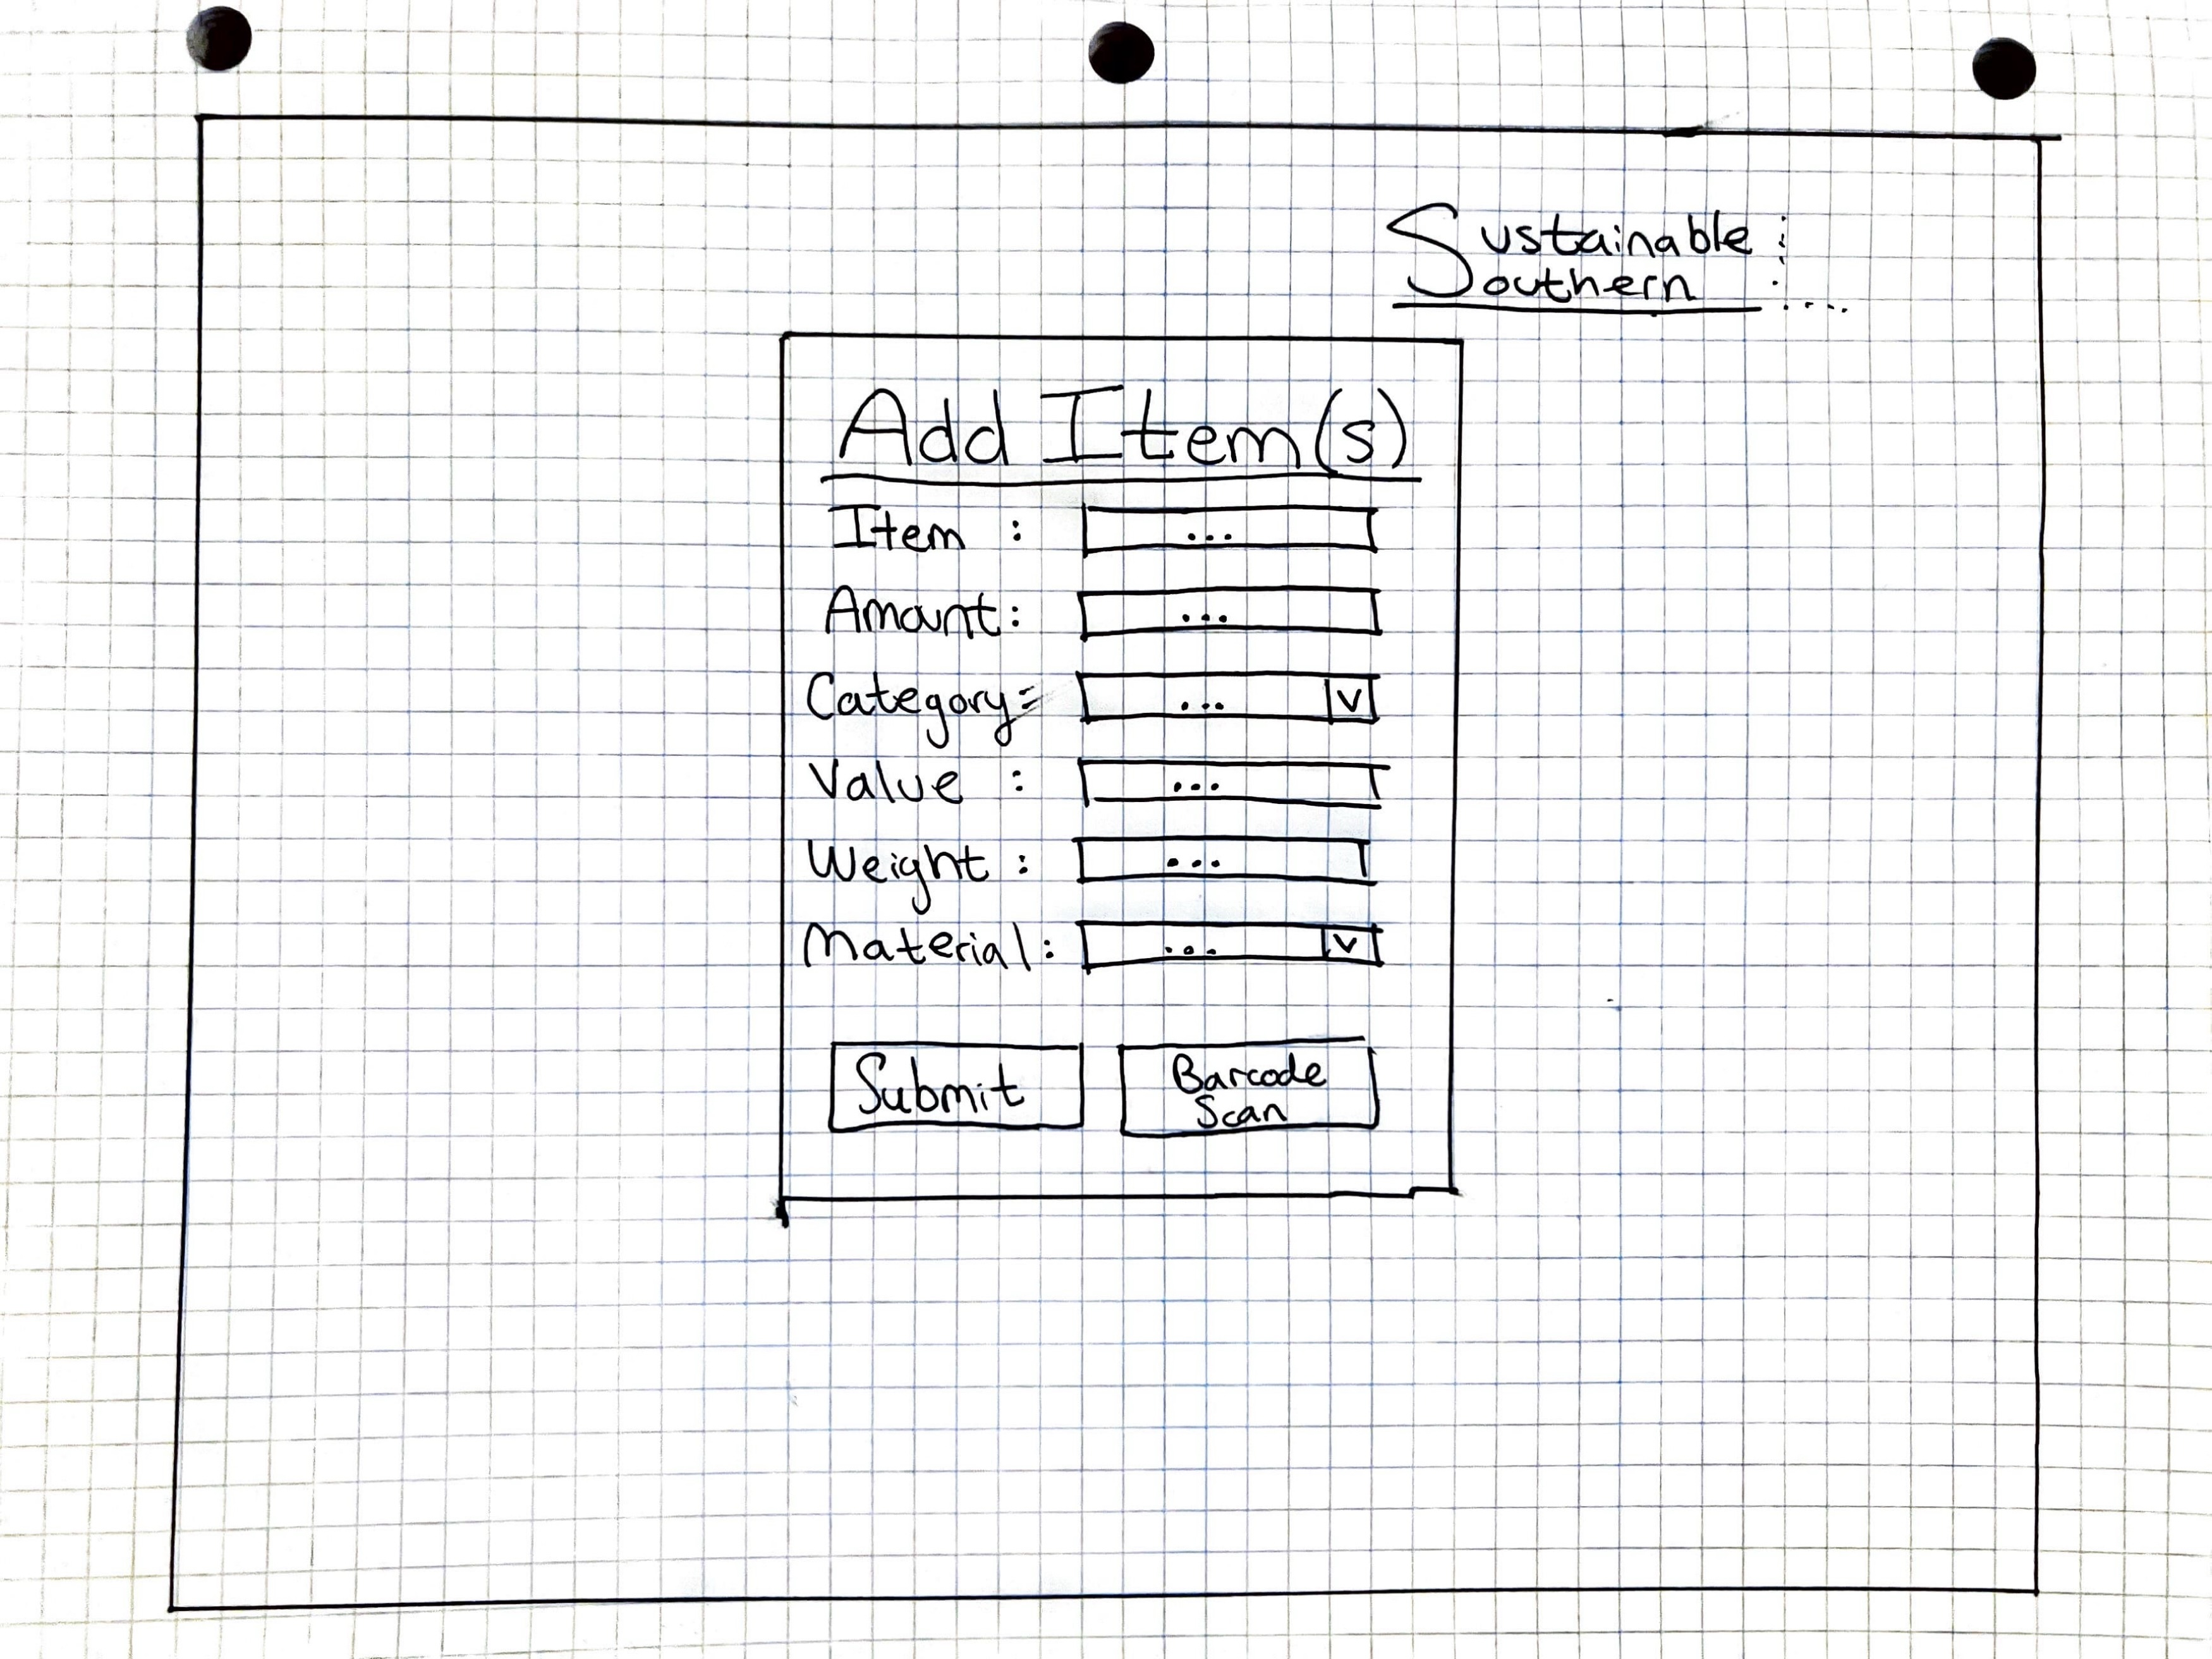 Sustainable
Southern
Add Item(s)
Item : ...
Amount: ...
Category: ... v
Value : ...
Weight : ...
Material: ... v
Submit
Barcode
Scan